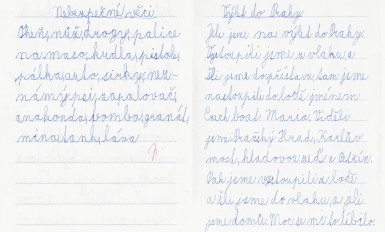 Nebezpečné věci
Oheň, nůž, drogy, palice
na maso, krudla, pistole,
pálka, auto, sirky, nez-
námý psi, zapalovač,
anakonda, bomba, granát,
mina, tank, láva
Výlet do Prahy
Jeli jsme na výlet do Prahy.
Vystoupili jsme z vlaku a
šli jsme do přístavu, tam jsme
nastoupili do lodě jménem
Cech boat Maria. Viděli
jsme Pražský Hrad, Karlův
most, hladovou zeď a
Pak jsme vystoupili z lodě
a šli jsme do vlaku, a jeli
jsme domů. Moc se mi to líbilo.